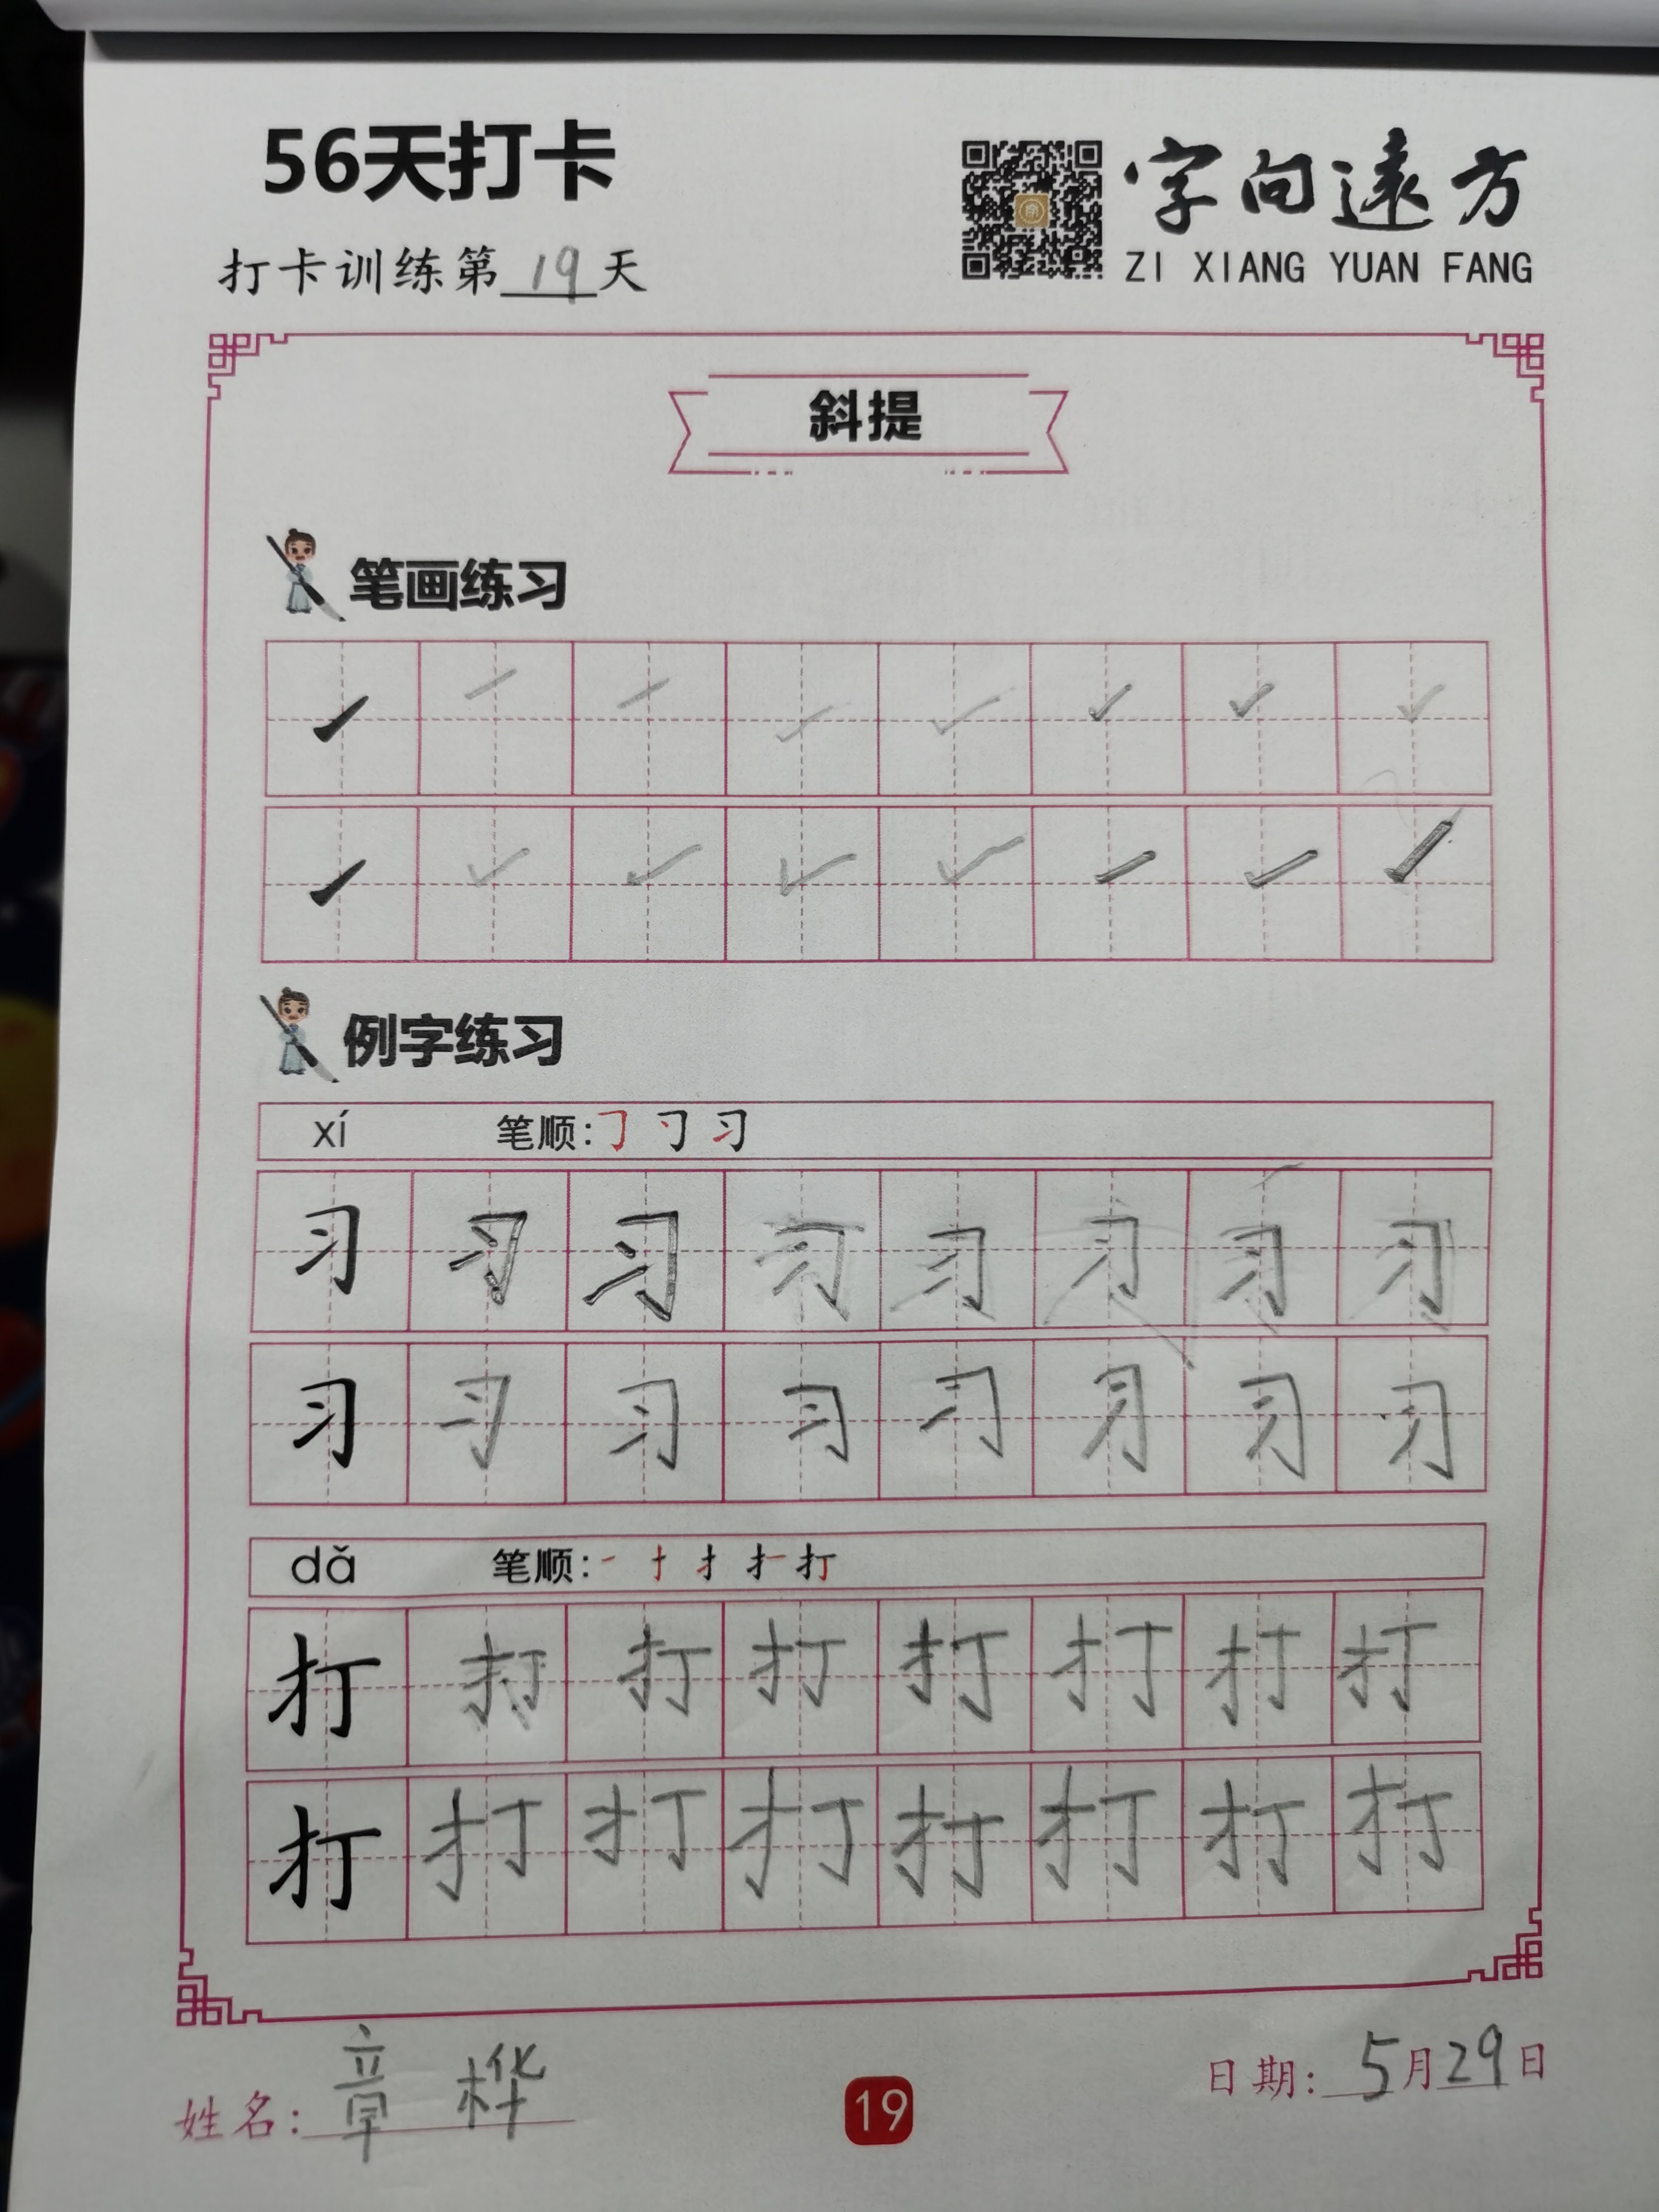 56天打卡
字向遠方
ZI XIANG YUAN FANG
打卡训练第19天
斜提
笔画练习
例字练习
xí 笔顺: 习
习 习 习 习 习 习 习 习
习 习 习 习 习 习 习 习
dǎ 笔顺: 一 扌 打
打 打 打 打 打 打 打 打
打 打 打 打 打 打 打 打
姓名: 章桦
19
日期: 5月29日